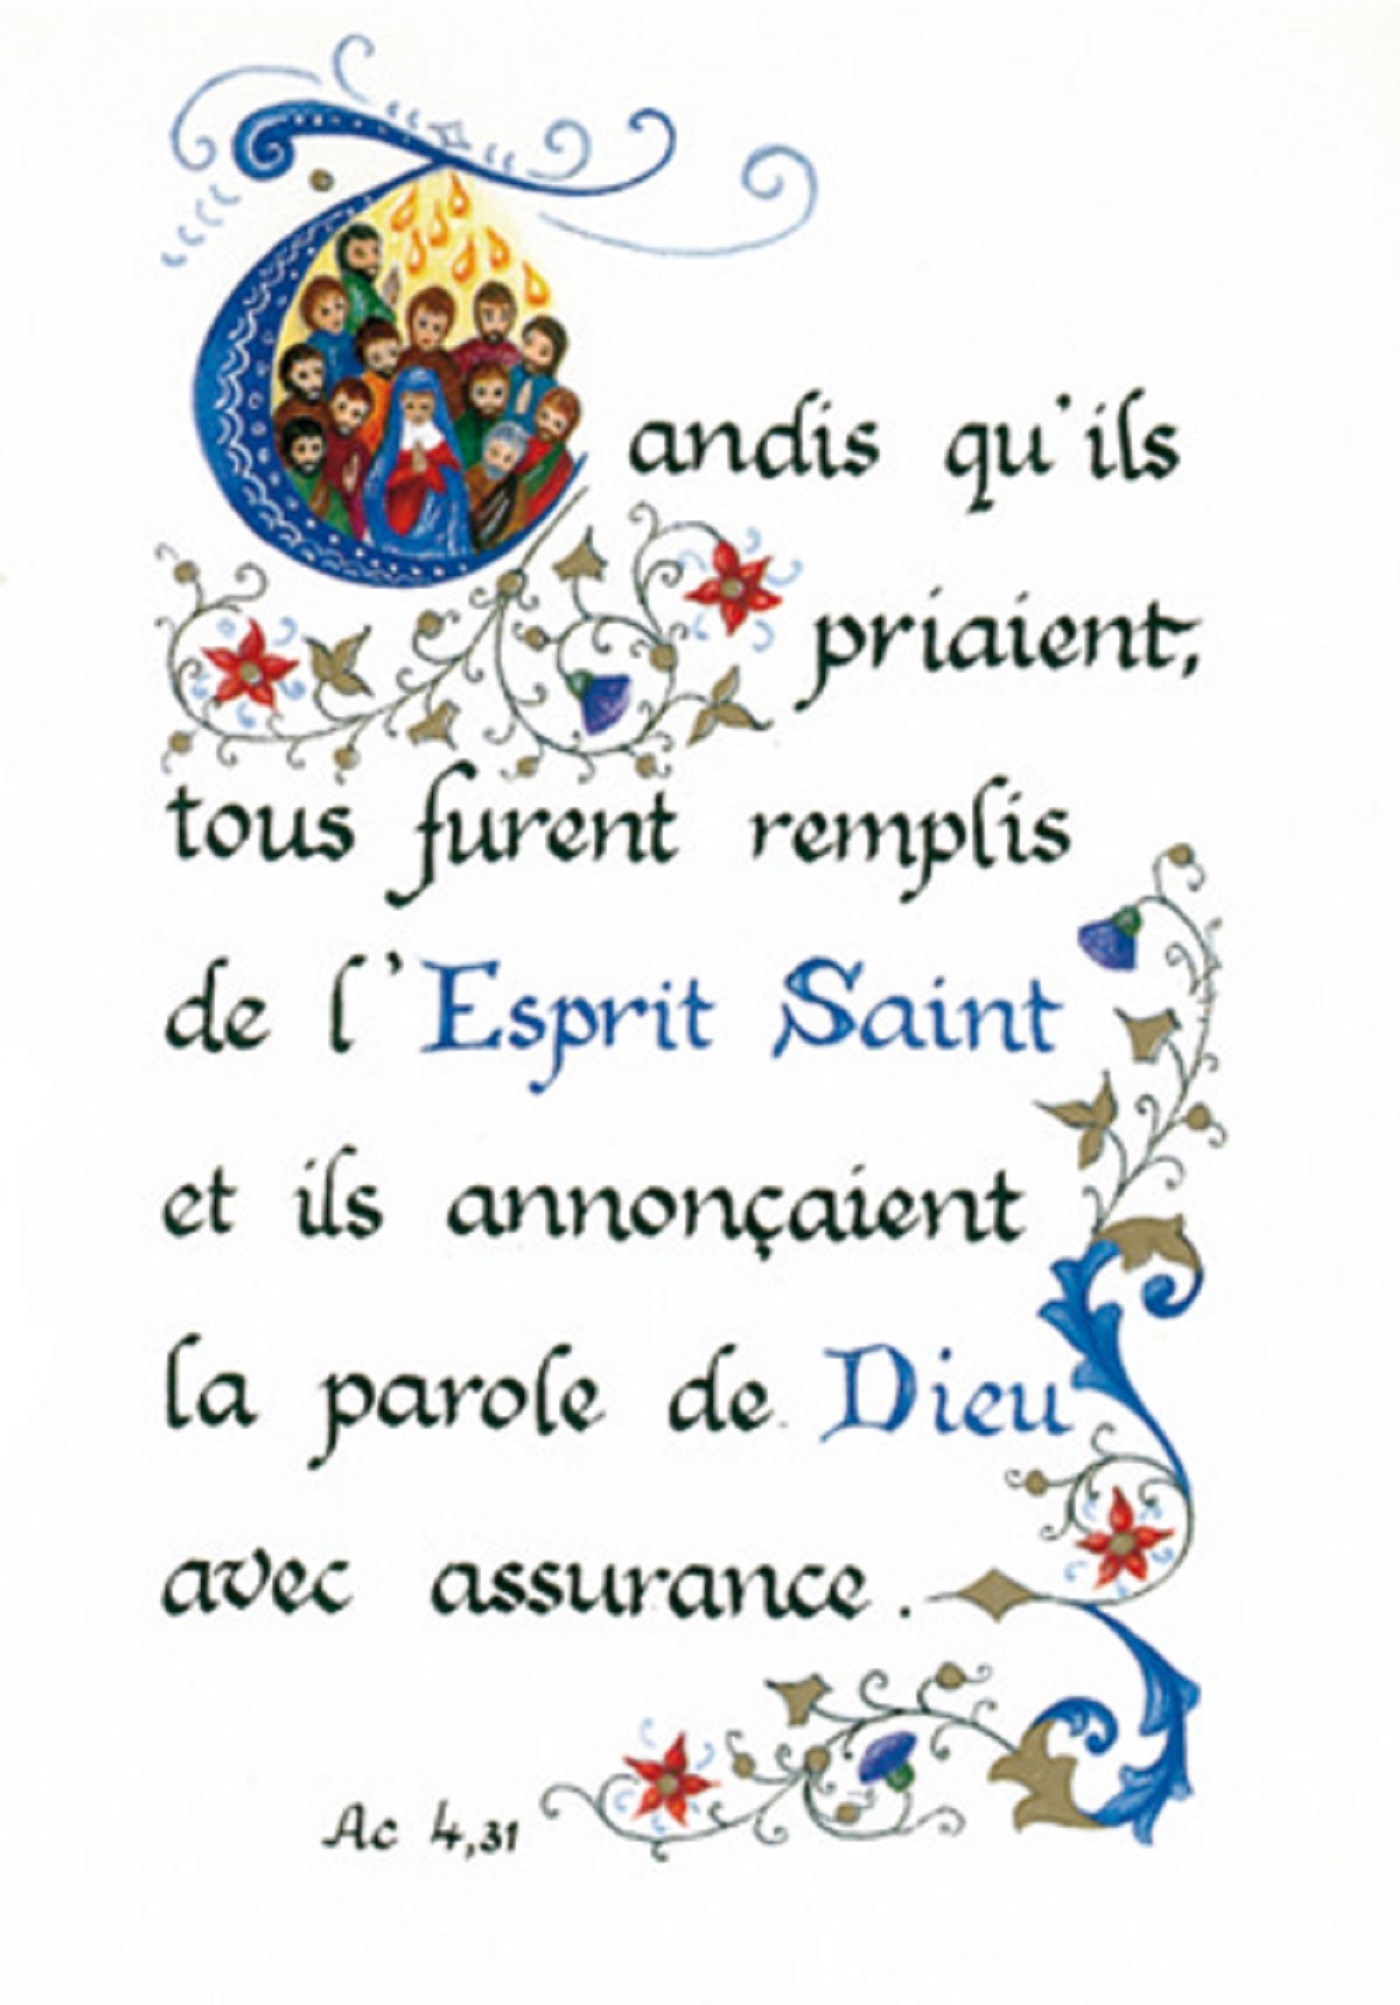 Tandis qu'ils
priaient,
tous furent remplis
de l'Esprit Saint
et ils annonçaient
la parole de Dieu
avec assurance.
Ac 4,31